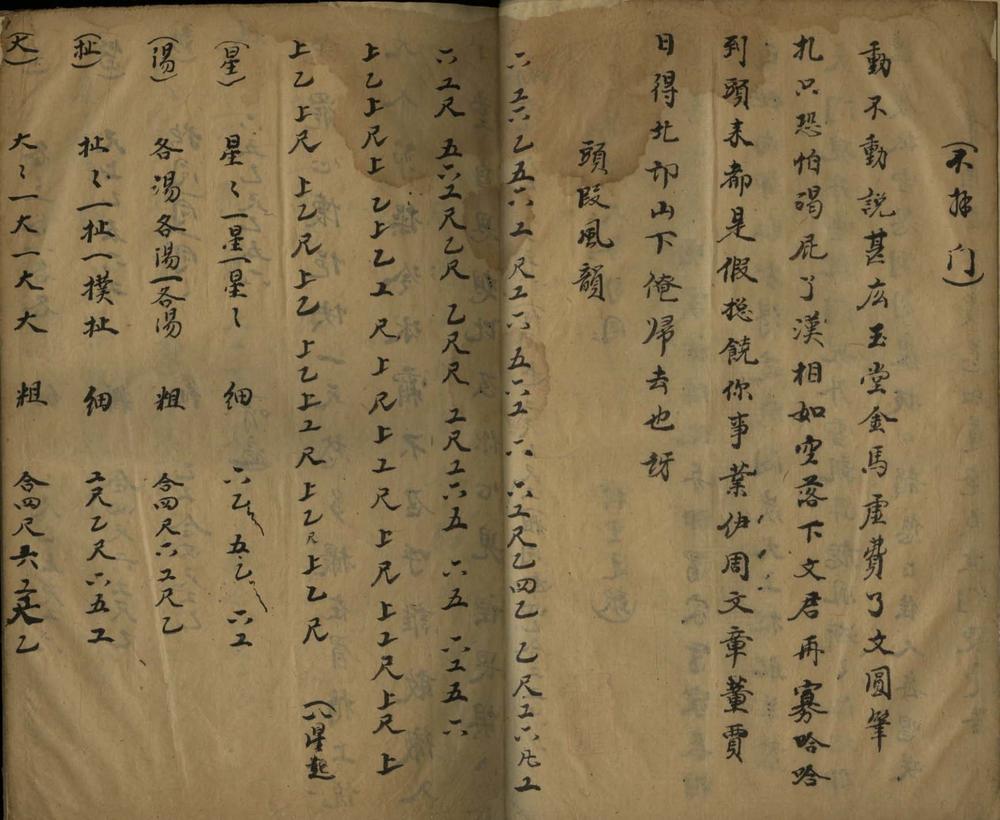 (不拜门)
動不動説甚広玉堂金馬虚費了文圓筆
扎只恐怕碣屁了漢相如空落下文君再寡哈哈
到頭来都是假捴饒你事業伊周文章董賈
日得北邙山下俺歸去也訝
頭段風韻
六工六乙五六工 尺工六 五六工六 六工尺乙四乙 乙尺工六凡工
六工尺 五六工尺乙尺 乙尺尺 工尺工六五 六五 六工五六
上乙上尺上 乙上乙工 尺上尺上工尺 上尺上工尺上尺上
上乙上尺 上乙尺上乙 上乙上工尺 上乙尺上乙尺 (八星起)
(星) 星〻一星一星〻 細 六乙 五乙 六工
(湯) 各湯各湯一各湯 粗 合四尺六工尺乙
(扯) 扯〻一扯一撲扯 細 工尺乙尺六五工
(大) 大〻一大一大大 粗 合四尺六工尺乙